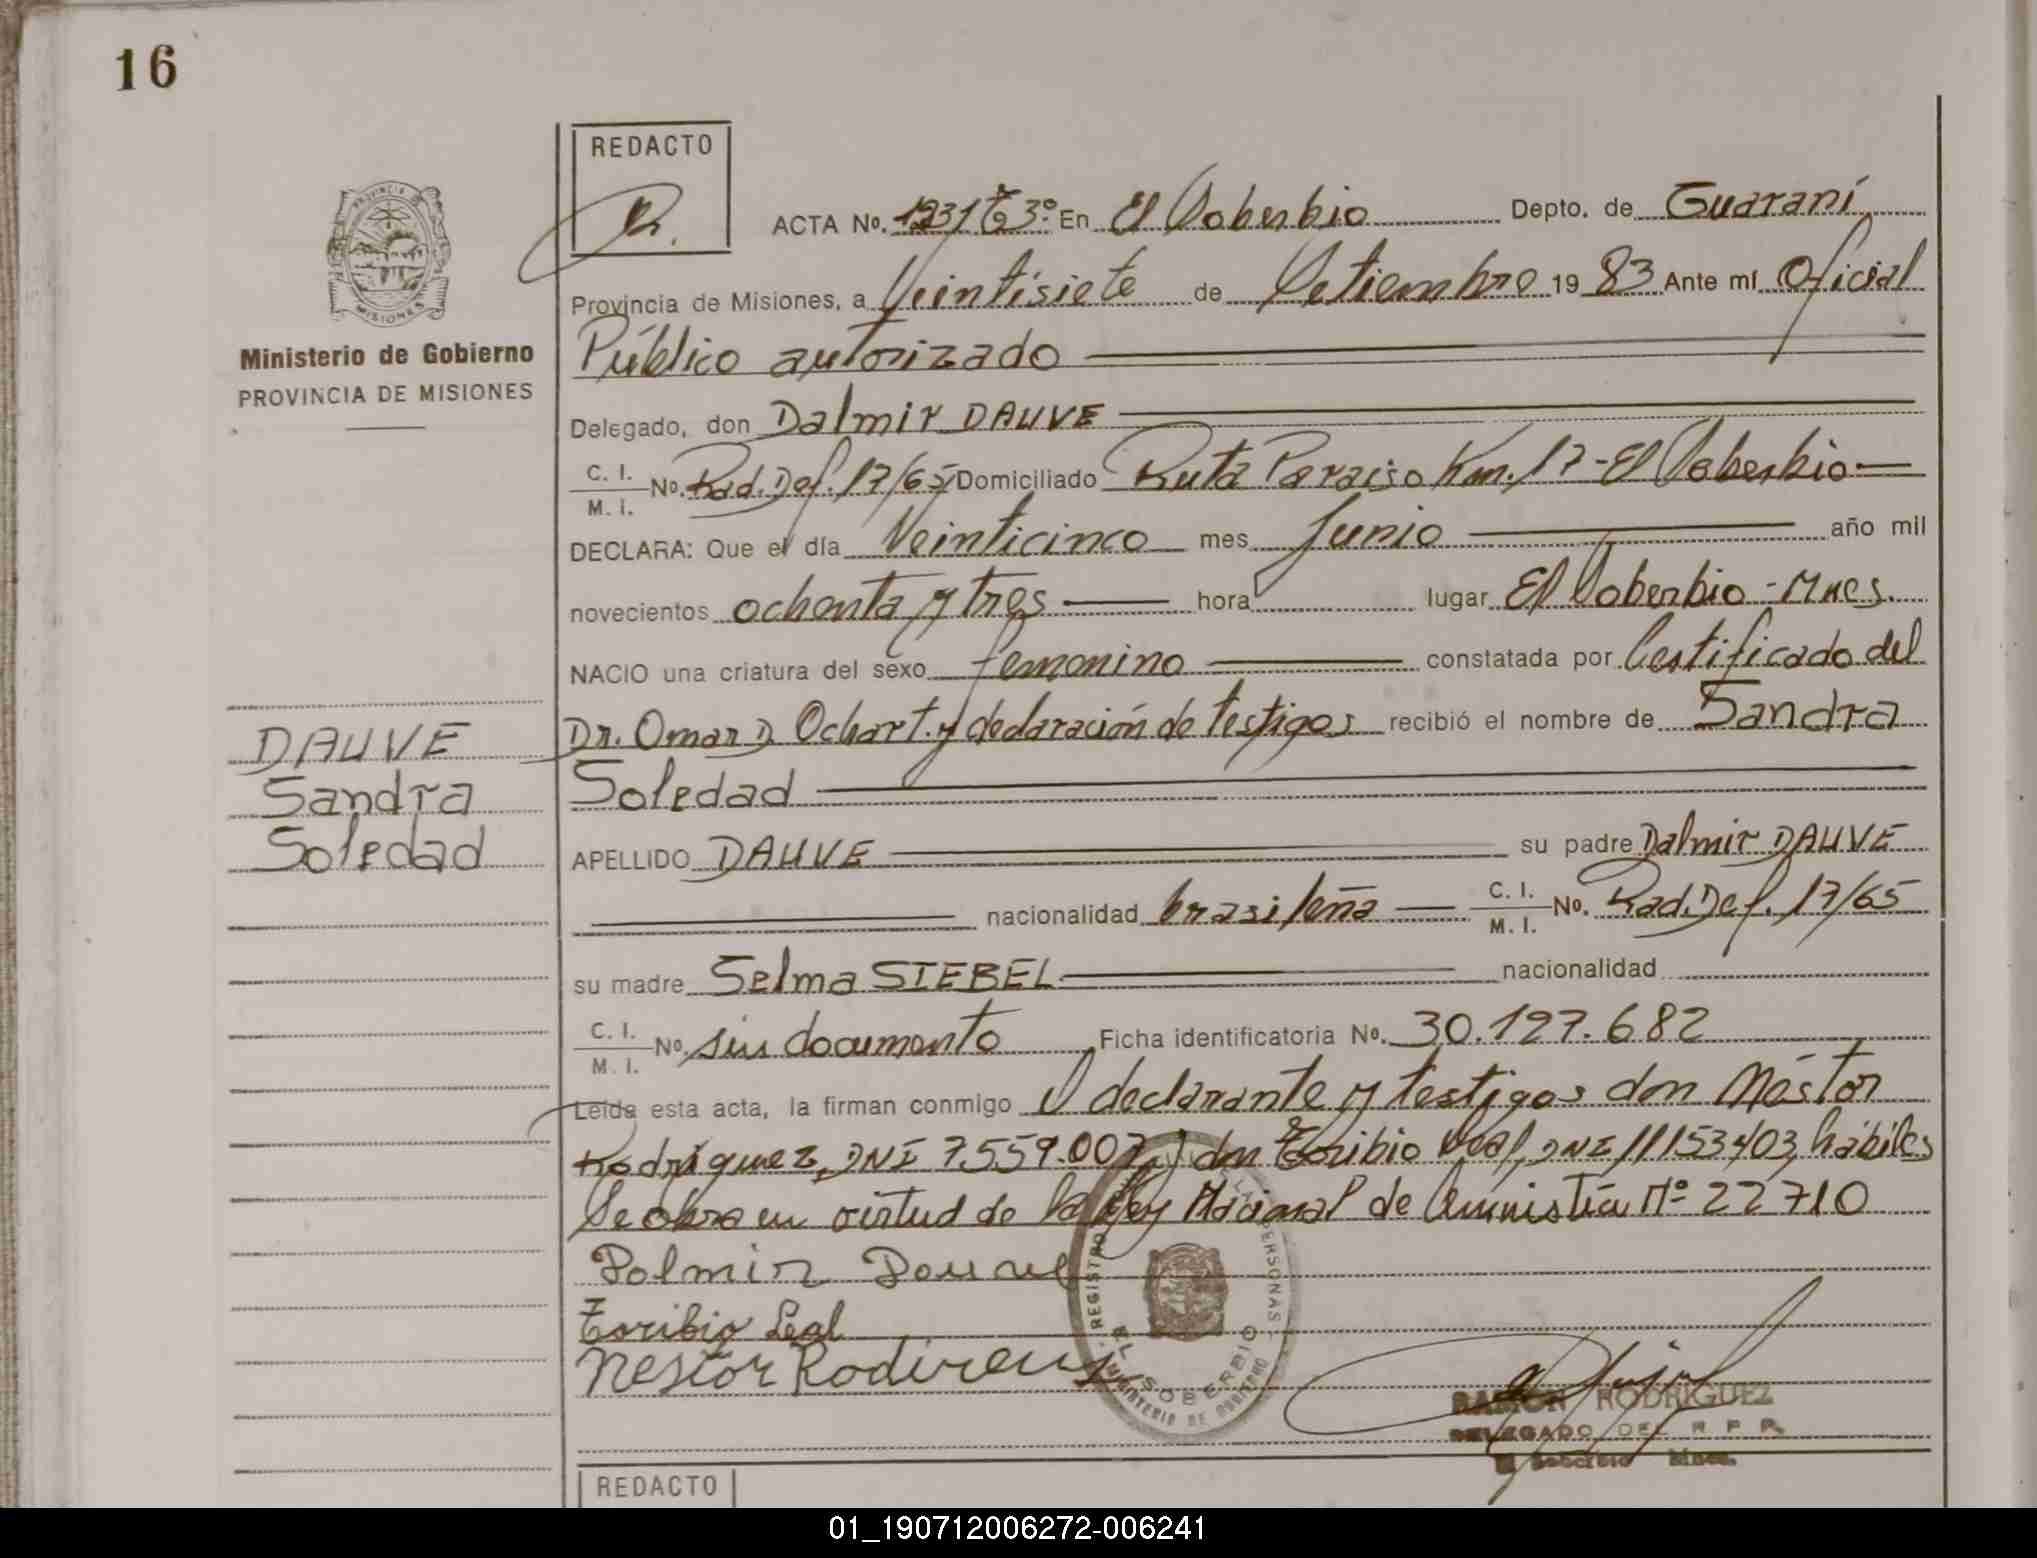 16
REDACTO
ACTA No. 1231 T 3º. En El Soberbio Depto. de Guaraní
Provincia de Misiones, a Veintisiete de Setiembre 19 83 Ante mí Oficial
Público autorizado
PROVINCIA DE
MISIONES
Ministerio de Gobierno
PROVINCIA DE MISIONES
Delegado, don Dalmir DAUVE
C. I.
M. I. No. Rad. Def. 17/65 Domiciliado Ruta Paraiso Km. 17 - El Soberbio
DECLARA: Que el día Veinticinco mes Junio año mil
novecientos ochenta y tres hora lugar El Soberbio - Mnes.
NACIO una criatura del sexo femenino constatada por Certificado del
Dr. Omar D. Ochart. y declaración de testigos recibió el nombre de Sandra
Soledad
DAUVE
Sandra
Soledad
APELLIDO DAUVE su padre Dalmir DAUVE
nacionalidad brasileña C. I.
M. I. No. Rad. Def. 17/65
su madre Selma SIEBEL nacionalidad
C. I.
M. I. No. sin documento Ficha identificatoria No. 30.127.682
Leída esta acta, la firman conmigo el declarante y testigos don Néstor
Rodríguez, DNI 7.559.007 y don Toribio Leal, DNI 11153403, hábiles
Se obra en virtud de la Ley Nacional de Amnistía Nº 22710
Dalmir Dauve
Toribio Leal
Nestor
REGISTRO LAS PERSONAS
EL SOBERBIO
MINISTERIO DE GOBIERNO
RAMON RODRIGUEZ
DELEGADO DEL R P P.
El Soberbio Mnes.
REDACTO
01_190712006272-006241